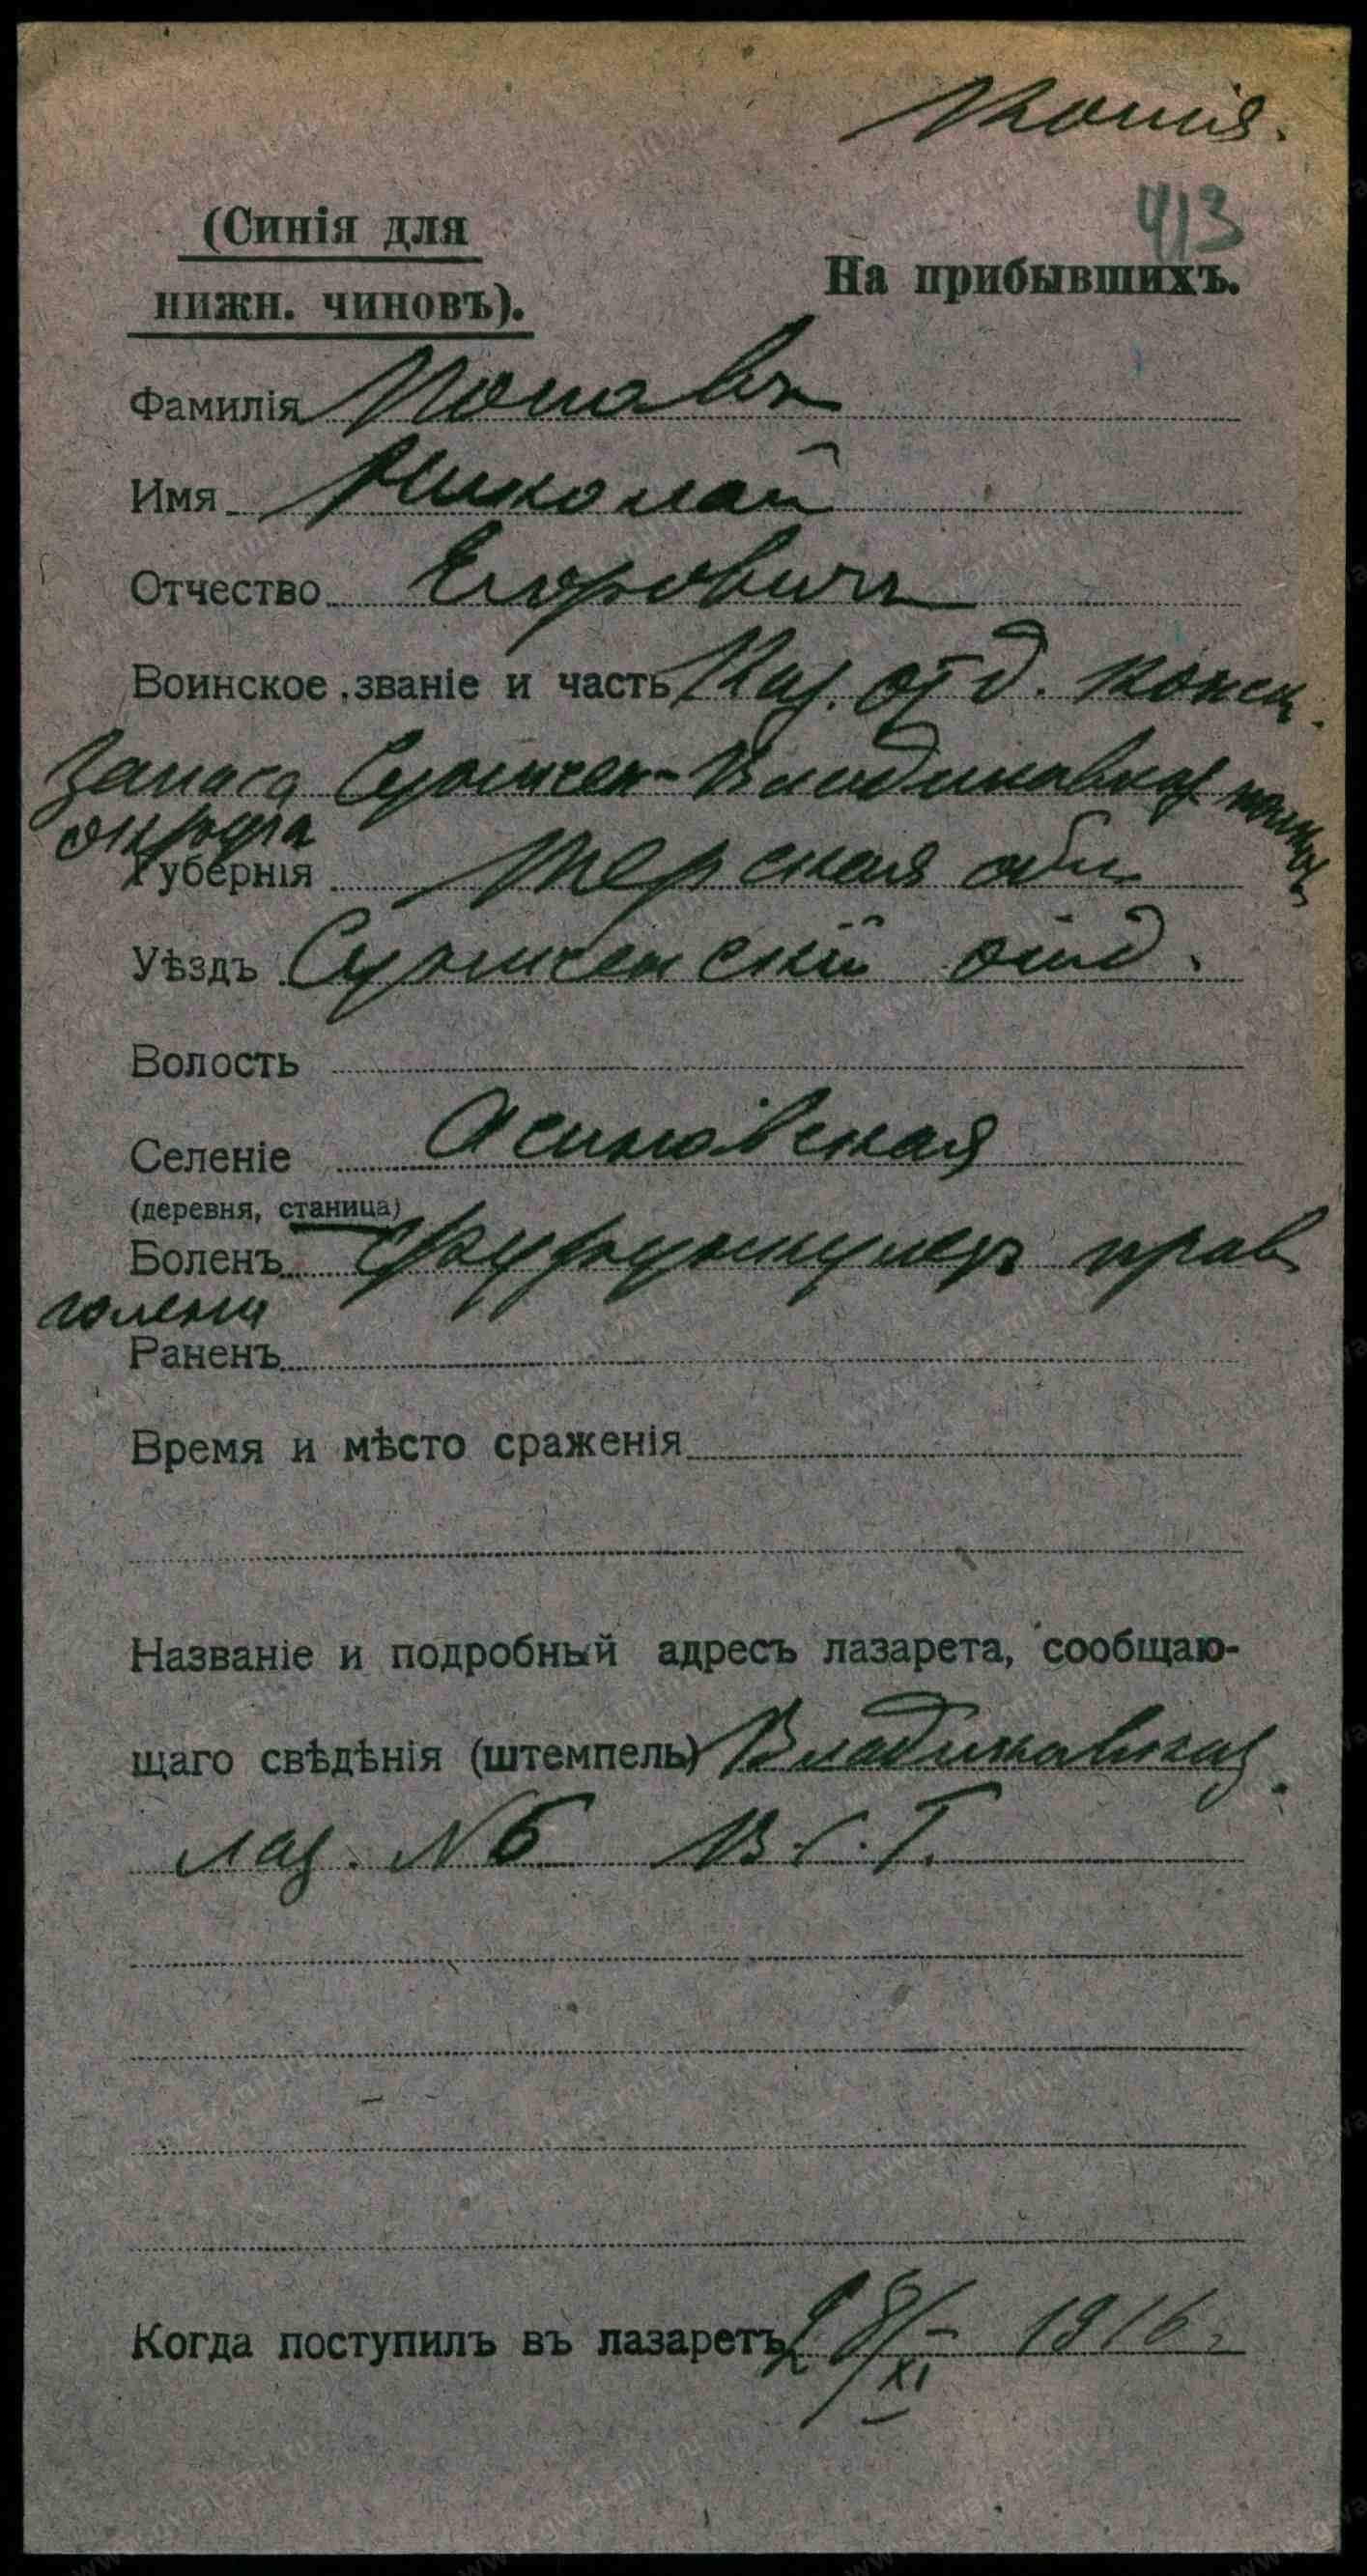 Копія.
413
(Синія для
нижн. чиновъ).
На прибывшихъ.
Фамилія Попов
Имя Николай
Отчество Егоровичъ
Воинское званіе и часть Каз. отд. конск.
запаса Сунжен-Владикавказ
округа
Губернія Терская обл
Уѣздъ Сунженскій отд.
Волость
Селеніе Асиновская
(деревня, станица)
Боленъ Фурункулезъ прав
голени
Раненъ
Время и мѣсто сраженія
Названіе и подробный адресъ лазарета, сообщаю-
щаго свѣдѣнія (штемпель) Владикавказ.
лаз. № 6 В.С.Г.
Когда поступилъ въ лазаретъ 28/XI - 1916.